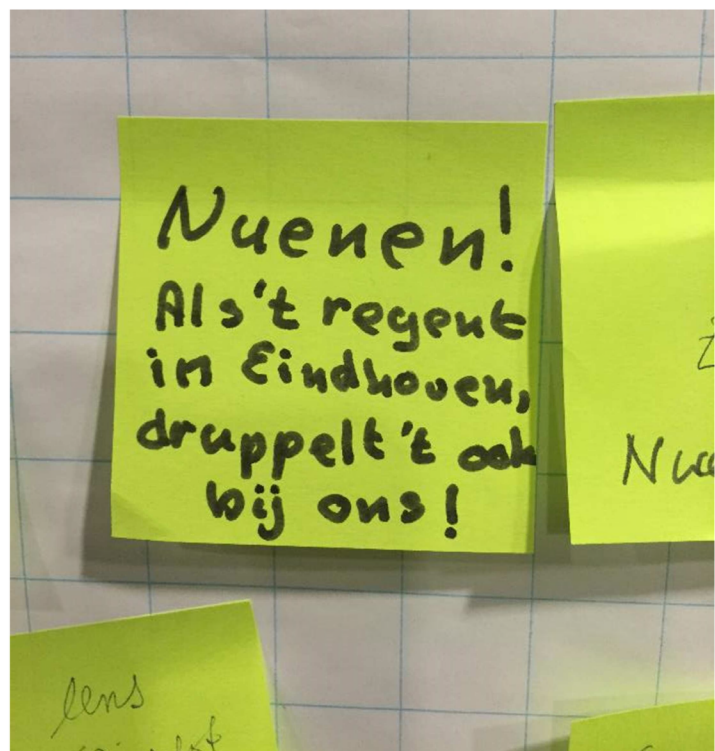 Nuenen!
Als 't regent
in Eindhoven,
druppelt 't ook
bij ons!
lens